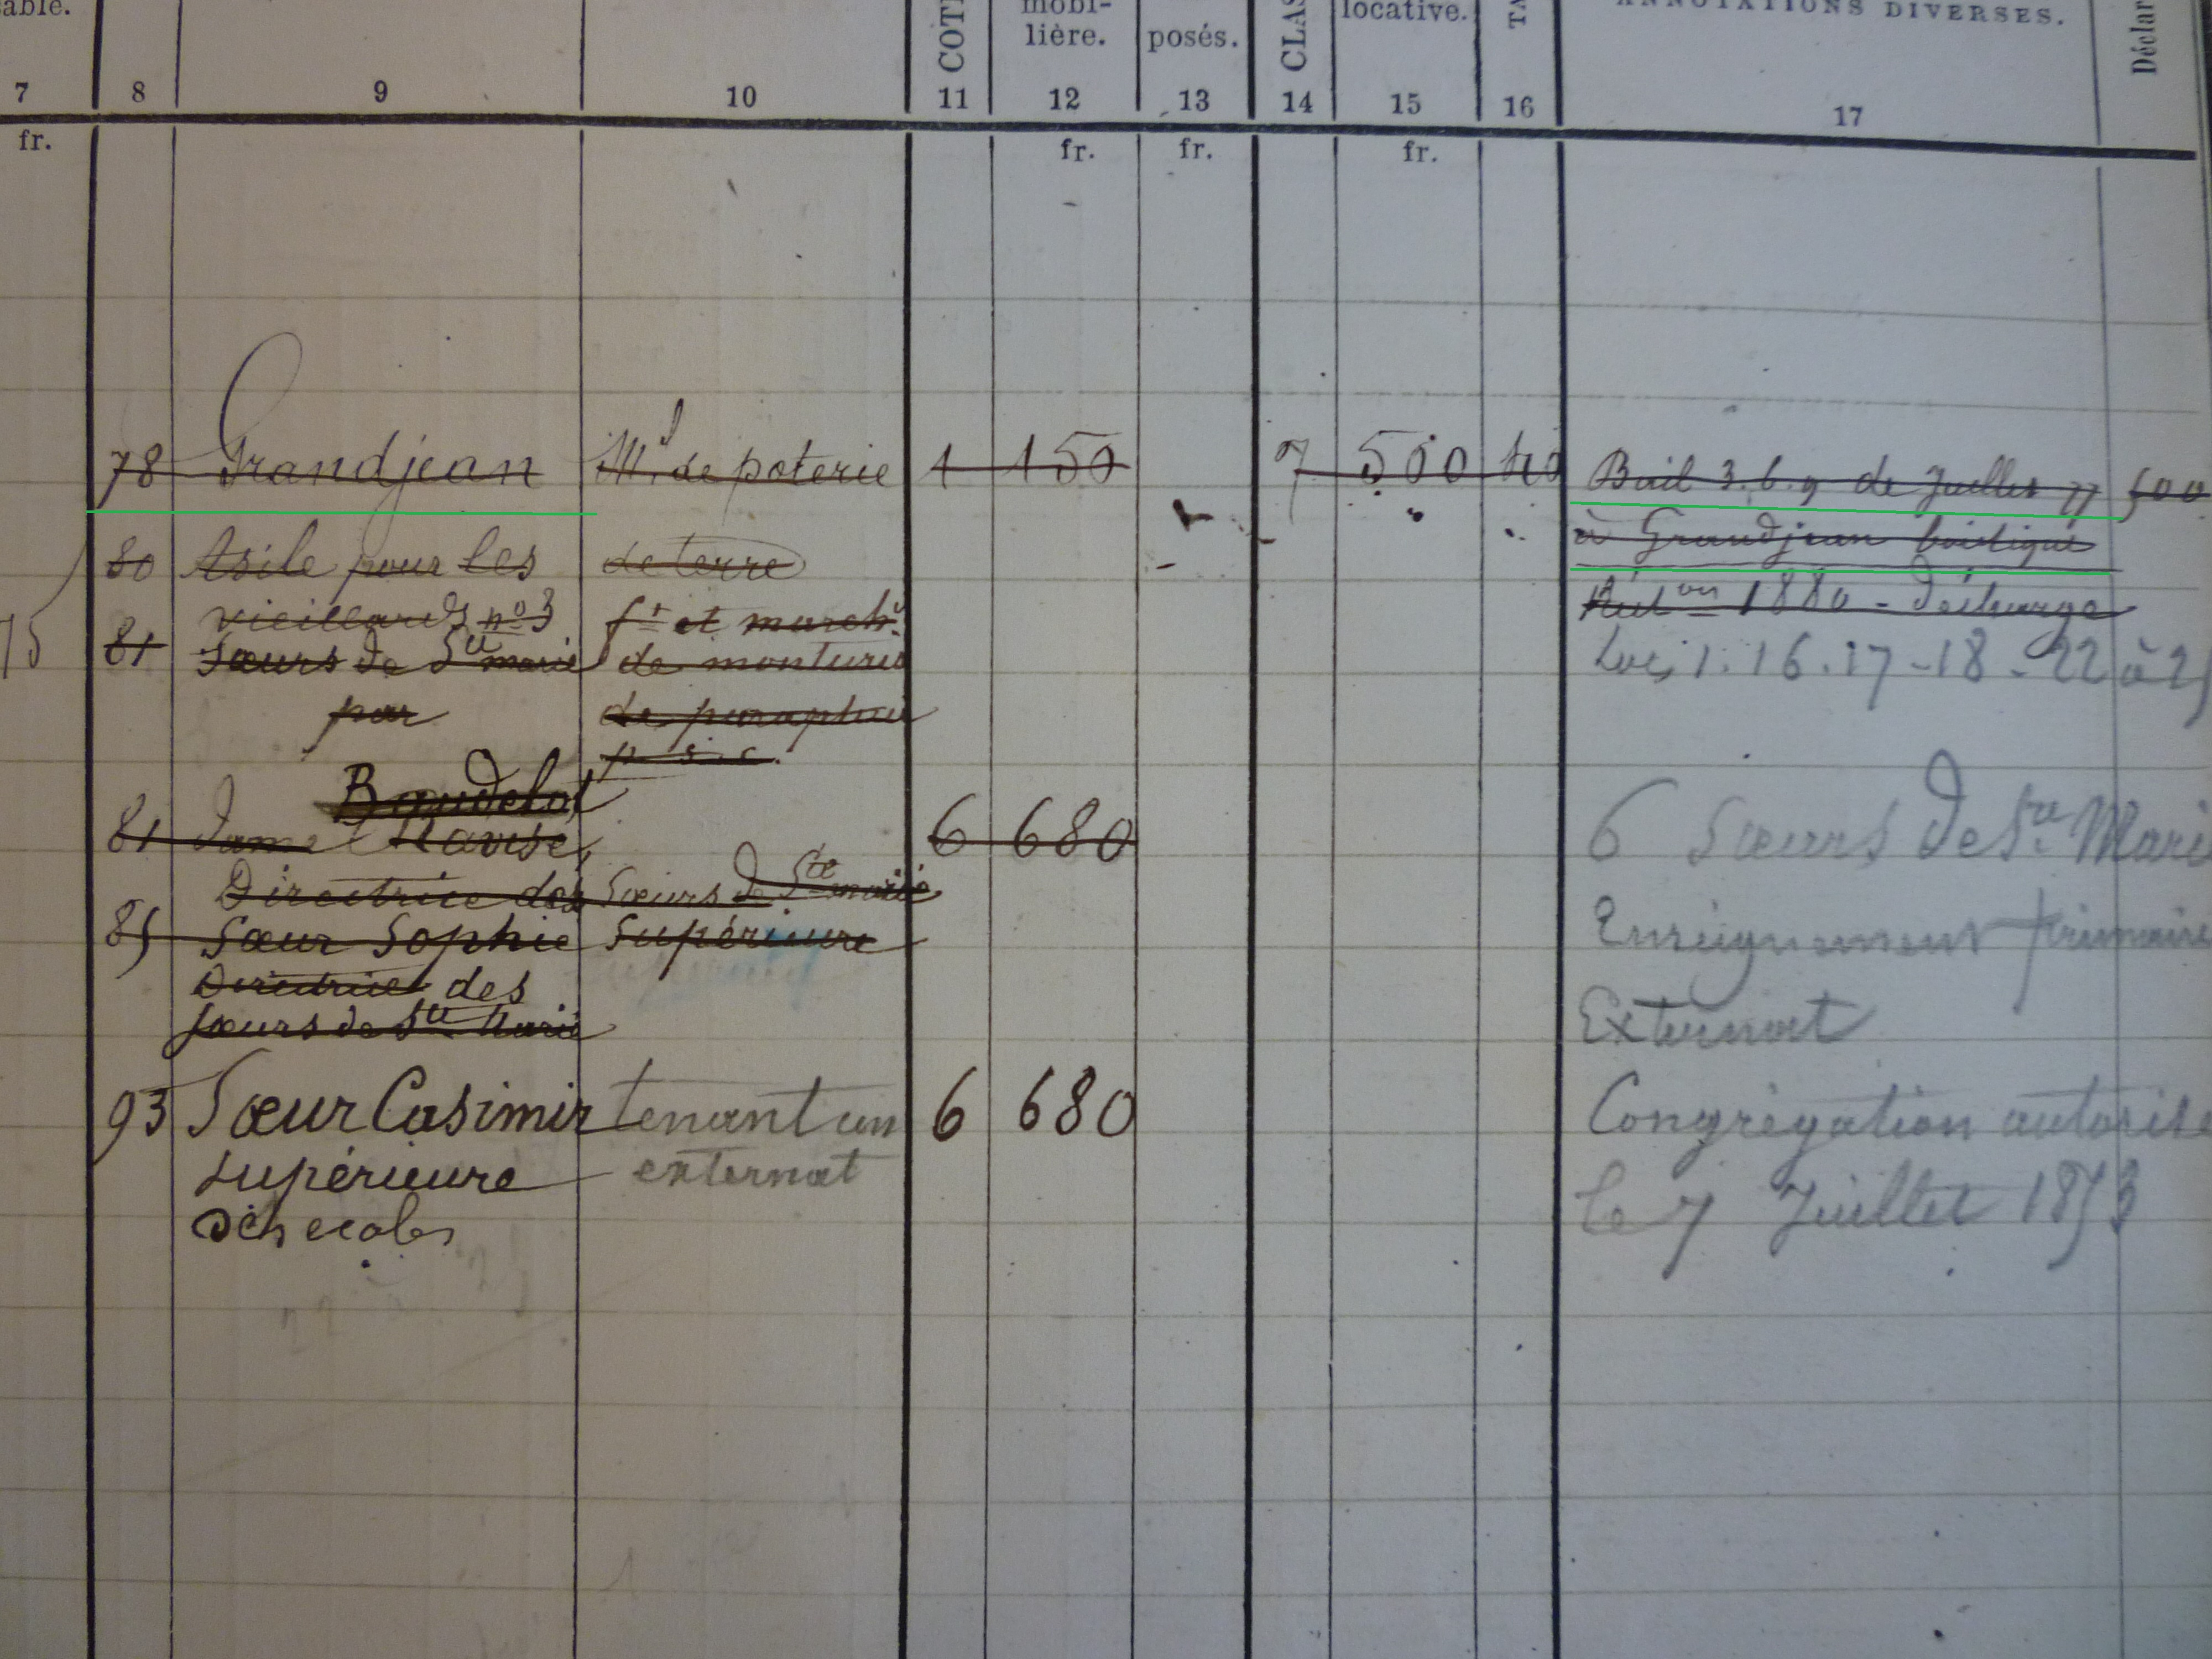 able.
COTE
mobi-
lière.
posés.
CLAS
locative.
TA
ANNOTATIONS DIVERSES.
Déclar
7 8 9 10 11 12 13 14 15 16 17
fr. fr. fr. fr.
78 Grandjean Md de poterie 1 150 7 500 40 Bail 3.6.9 de Juillet 77 500
à Grandjean boutique
80 Asile pour les de terre
vieillards no 3 ft et marchd 1880 - Décharge
81 Sœurs de Ste marie de montures
15 Loc. 1. 16. 17 - 18 - 22 à 25
par de parapluie
p s. c.
Baudelot
81 dame 6 680 6 Sœurs de Ste Marie
Directrice des Sœurs de Ste marie
85 Sœur Sophie Supérieure Enseignement primaire
Directrice des
Sœurs de Ste Marie Externat
93 Sœur Casimir tenant un 6 680 Congrégation autorisé
supérieure externat le 7 Juillet 1853
des ecoles
22 à 25